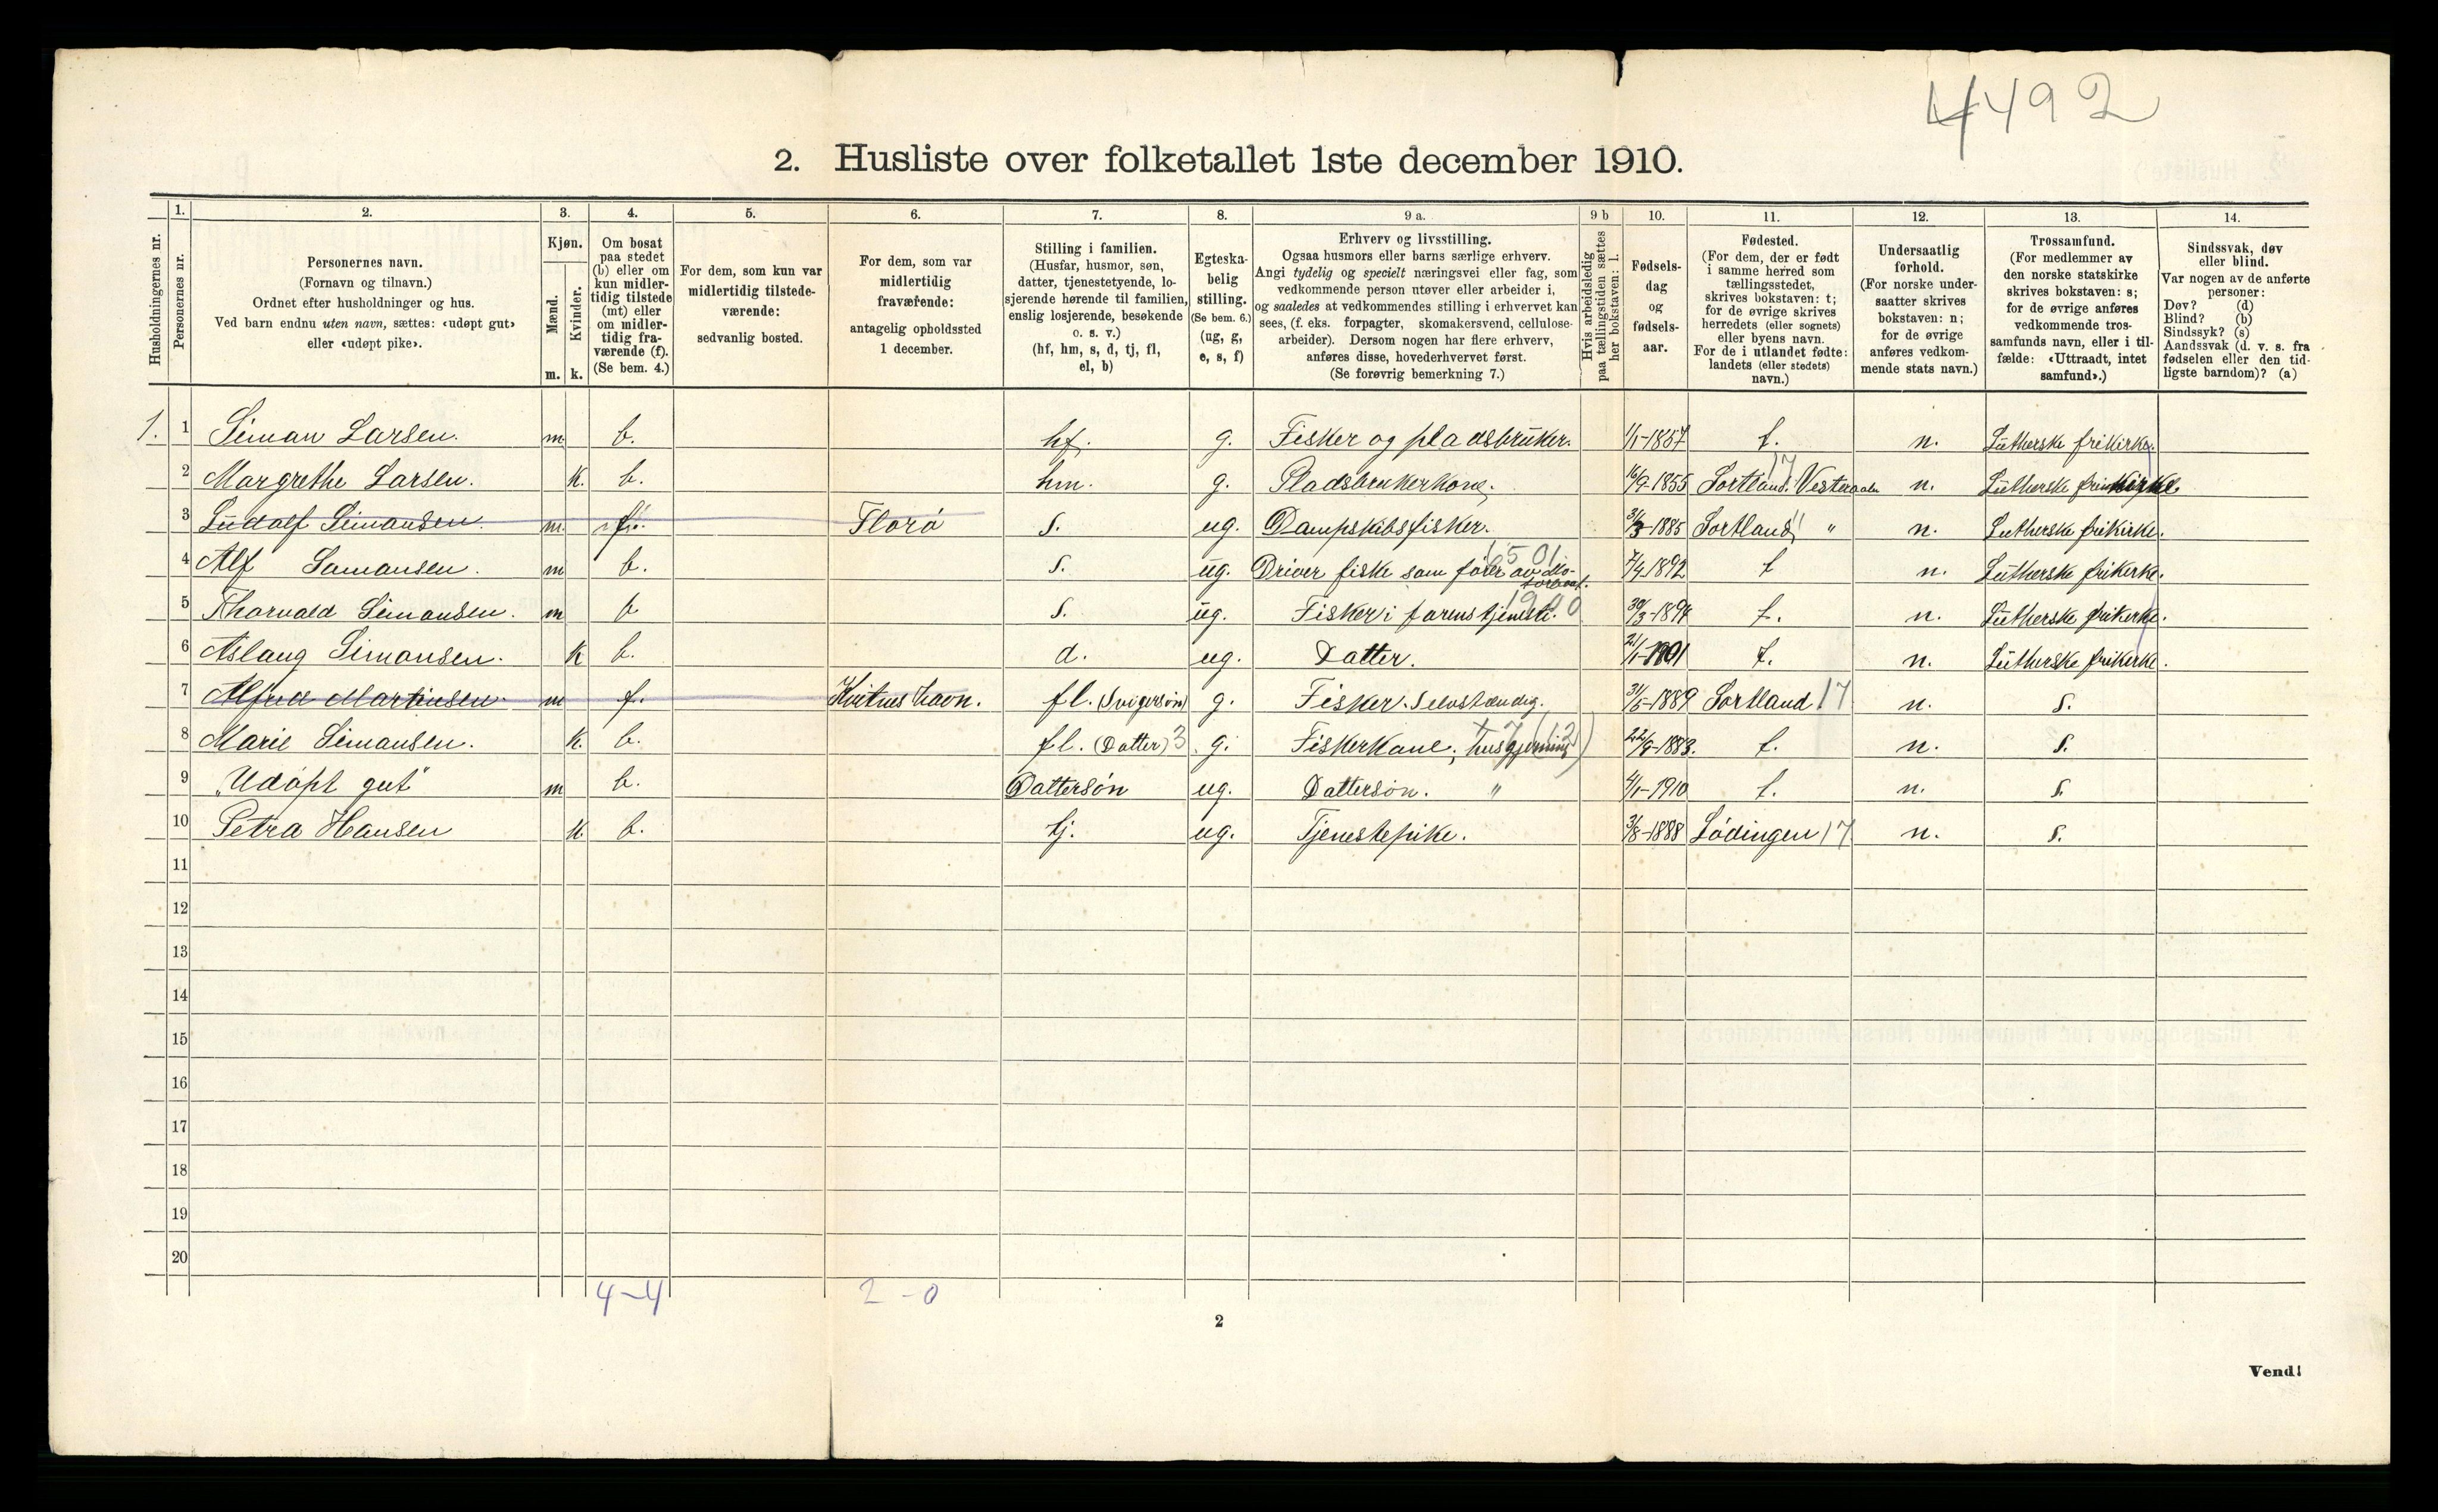 4492
2. Husliste over folketallet 1ste december 1910.
1. 2. 3. 4. 5. 6. 7. 8. 9 a. 9 b 10. 11. 12. 13. 14.
Husholdningernes nr.
Personernes nr.
Personernes navn.
(Fornavn og tilnavn.)
Ordnet efter husholdninger og hus.
Ved barn endnu uten navn, sættes: «udøpt gut»
eller «udøpt pike».
Kjøn.
Mænd.
Kvinder.
m. k.
Om bosat
paa stedet
(b) eller om
kun midler-
tidig tilstede
(mt) eller
om midler-
tidig fra-
værende (f).
(Se bem. 4.)
For dem, som kun var
midlertidig tilstede-
værende:
sedvanlig bosted.
For dem, som var
midlertidig
fraværende:
antagelig opholdssted
1 december.
Stilling i familien.
(Husfar, husmor, søn,
datter, tjenestetyende, lo-
sjerende hørende til familien,
enslig losjerende, besøkende
o. s. v.)
(hf, hm, s, d, tj, fl,
el, b)
Egteska-
belig
stilling.
(Se bem. 6.)
(ug, g,
e, s, f)
Erhverv og livsstilling.
Ogsaa husmors eller barns særlige erhverv.
Angi tydelig og specielt næringsvei eller fag, som
vedkommende person utøver eller arbeider i,
og saaledes at vedkommendes stilling i erhvervet kan
sees, (f. eks. forpagter, skomakersvend, cellulose-
arbeider). Dersom nogen har flere erhverv,
anføres disse, hovederhvervet først.
(Se forøvrig bemerkning 7.)
Hvis arbeidsledig
paa tællingstiden sættes
her bokstaven: l.
Fødsels-
dag
og
fødsels-
aar.
Fødested.
(For dem, der er født
i samme herred som
tællingsstedet,
skrives bokstaven: t;
for de øvrige skrives
herredets (eller sognets)
eller byens navn.
For de i utlandet fødte:
landets (eller stedets)
navn.)
Undersaatlig
forhold.
(For norske under-
saatter skrives
bokstaven: n;
for de øvrige
anføres vedkom-
mende stats navn.)
Trossamfund.
(For medlemmer av
den norske statskirke
skrives bokstaven: s;
for de øvrige anføres
vedkommende tros-
samfunds navn, eller i til-
fælde: «Uttraadt, intet
samfund».)
Sindssvak, døv
eller blind.
Var nogen av de anførte
personer:
Døv? (d)
Blind? (b)
Sindssyk? (s)
Aandssvak (d. v. s. fra
fødselen eller den tid-
ligste barndom)? (a)
1. 1 Siman Larsen. m b. hf. g. Fisker og pladsbruker. 1/1-1857 t. n. Lutherske frikirke.
2 Margrethe Larsen. k. b. hm. g. Pladsbrukerkone. 16/9-1855 Sortland. Vesteraalen 17 n. Lutherske frikirke.
3 Ludolf Simonsen. m. f. Florø s. ug. Dampskibsfisker. 31/3-1885 Sortland " n. Lutherske frikirke.
4 Alf Samansen. m b. s. ug. Driver fiske som fører av Mo-
torbaat. 7/4-1892 t n. Lutherske frikerke.
5 Thorvald Simonsen. m b s. ug. Fisker i farens tjeneste. 1900 30/3-1894 t. n. Lutherske frikerke.
6 Aslaug Simonsen. k b. d. ug. Datter. 21/1-1901 t. n. Lutherske frikerke.
7 Alfred Martinsen m f. Kvitnes havn. fl. (Svigersøn) g. Fisker. Selvstændig. 31/5-1889 Sortland 17 n. s.
8 Marie Simonsen. k. b. fl. (Datter) 3 g. Fiskerkone, husgjerning 22/9-1883. t. n. s.
9 "Udøpt gut" m b. Dattersøn ug. Dattersøn. " 4/1-1910 t. n. s.
10 Petra Hansen k b. tj. ug. Tjenestepike. 3/8-1888 Lødingen 17 n. s.
11
12
13
14
15
16
17
18
19
20
4-4 2-0
2
Vend!